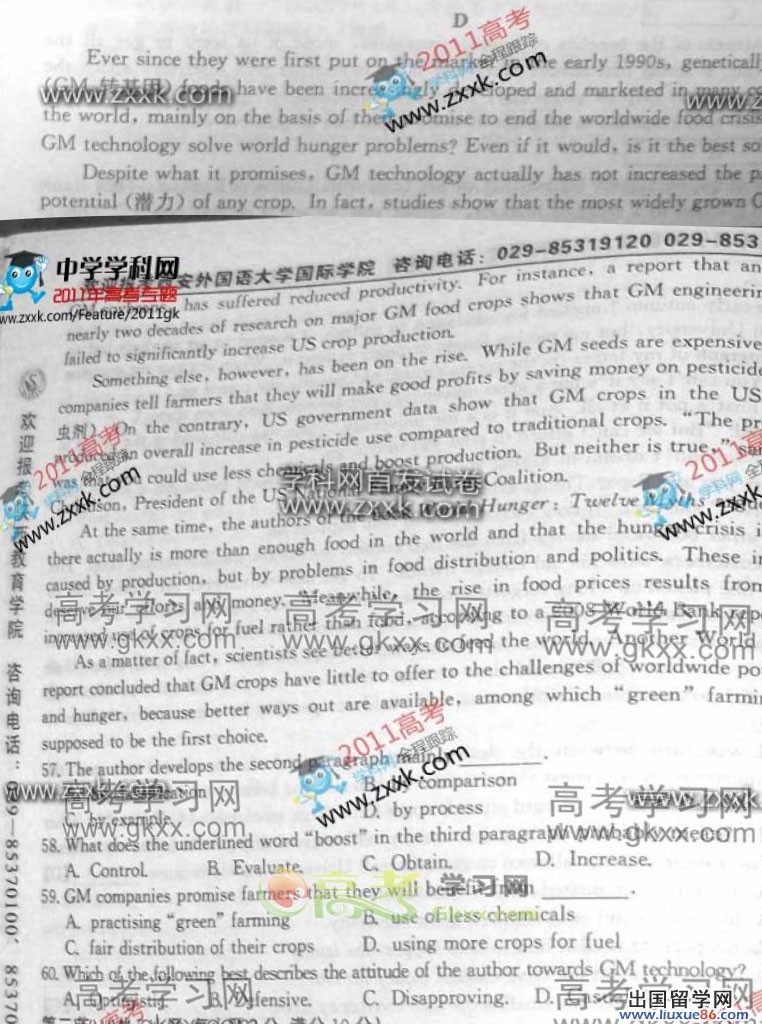 D
Ever since they were first put on the market in the early 1990s, genetically
(GM 转基因) foods have been increasingly developed and marketed in many co
the world, mainly on the basis of their promise to end the worldwide food crisis
GM technology solve world hunger problems? Even if it would, is it the best so
Despite what it promises, GM technology actually has not increased the p
potential (潜力) of any crop. In fact, studies show that the most widely grown G
安外国语大学国际学院 咨询电话：029-85319120 029-853
has suffered reduced productivity. For instance, a report that an
nearly two decades of research on major GM food crops shows that GM engineerin
failed to significantly increase US crop production.
Something else, however, has been on the rise. While GM seeds are expensive
companies tell farmers that they will make good profits by saving money on pesticide
虫剂). On the contrary, US government data show that GM crops in the US
produced an overall increase in pesticide use compared to traditional crops. “The pr
was that you could use less chemicals and boost production. But neither is true,” sai
President of the US National Coalition.
At the same time, the authors of the book World Hunger: Twelve Myths
there actually is more than enough food in the world and that the hunger crisis i
caused by production, but by problems in food distribution and politics. These i
deserve our efforts and money. Meanwhile, the rise in food prices results from
increased use of crops for fuel rather than food, according to a 2008 World Bank rep
As a matter of fact, scientists see better ways to feed the world. Another World
report concluded that GM crops have little to offer to the challenges of worldwide po
and hunger, because better ways out are available, among which “green” farmin
supposed to be the first choice.
57. The author develops the second paragraph mainly ________.
B. by comparison
C. by example
D. by process
58. What does the underlined word “boost” in the third paragraph probably mean?
A. Control. B. Evaluate. C. Obtain. D. Increase.
59. GM companies promise farmers that they will benefit from ________.
A. practising “green” farming B. use of less chemicals
C. fair distribution of their crops D. using more crops for fuel
60. Which of the following best describes the attitude of the author towards GM technology?
A. Optimistic. B. Defensive. C. Disapproving. D.
欢迎报考
教育学院
咨询电话：029-85370100、85370
中学学科网
2011年高考专题
www.zxxk.com/Feature/2011gk
2011高考
学科网 全程跟踪
www.zxxk.com
www.zxxk.com
学科网首发试卷
www.zxxk.com
2011高考
全程跟踪
www.zxxk.com
2011高考
学科网
www.zxxk.com
高考学习网
www.gkxx.com
高考学习网
www.gkxx.com
高考学习网
www.gkxx.com
2011高考
学科网 全程跟踪
www.zxxk.com
www.zxxk.com
高考学习网
www.gkxx.com
高考学习网
www.gkxx.com
高考
学习网
Gkxx.com
高考学习网
出国留学网
www.liuxue86.com